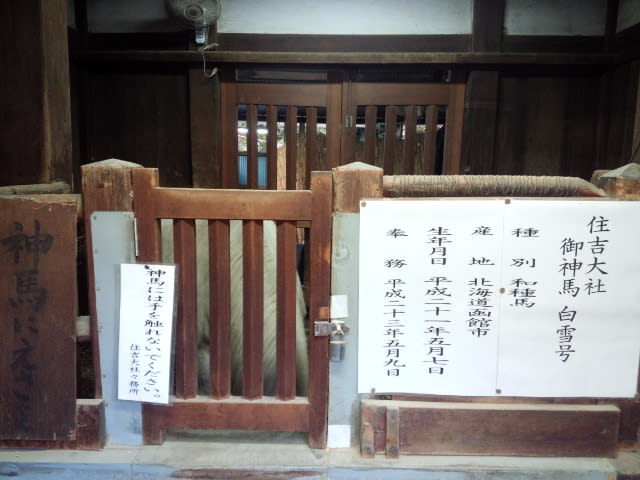 住吉大社
御神馬 白雪号
種別 和種馬
産地 北海道函館市
生年月日 平成二十一年五月七日
奉務 平成二十三年五月九日
神馬には手を触れないでください。
住吉大社々務所
神馬にえさ